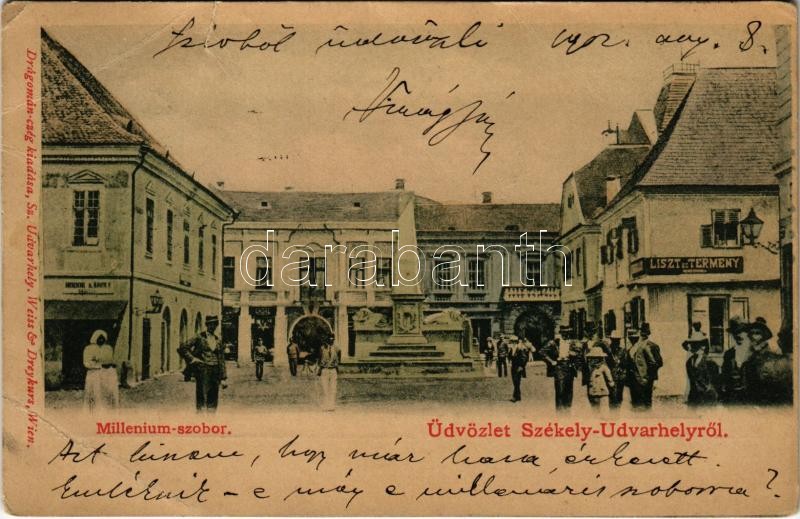 Szívből üdvözli 1902. aug. 8.
Virág János
Drágomán-czég kiadása, Sz. Udvarhely. Weiss & Dreykurs, Wien.
LISZT és TERMÉNY
darabanth.com
Millenium-szobor.
Üdvözlet Székely-Udvarhelyről.
Azt hiszem, hogy már haza érkezett.
Emlékszik-e még e milleniumi szoborra?